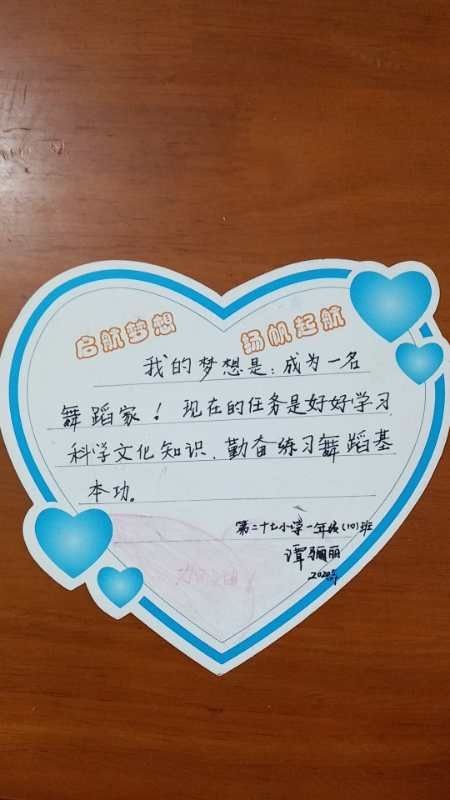 启航梦想 扬帆起航
我的梦想是:成为一名
舞蹈家！现在的任务是好好学习
科学文化知识、勤奋练习舞蹈基
本功。
第二十七小学一年级(10)班
谭骊丽